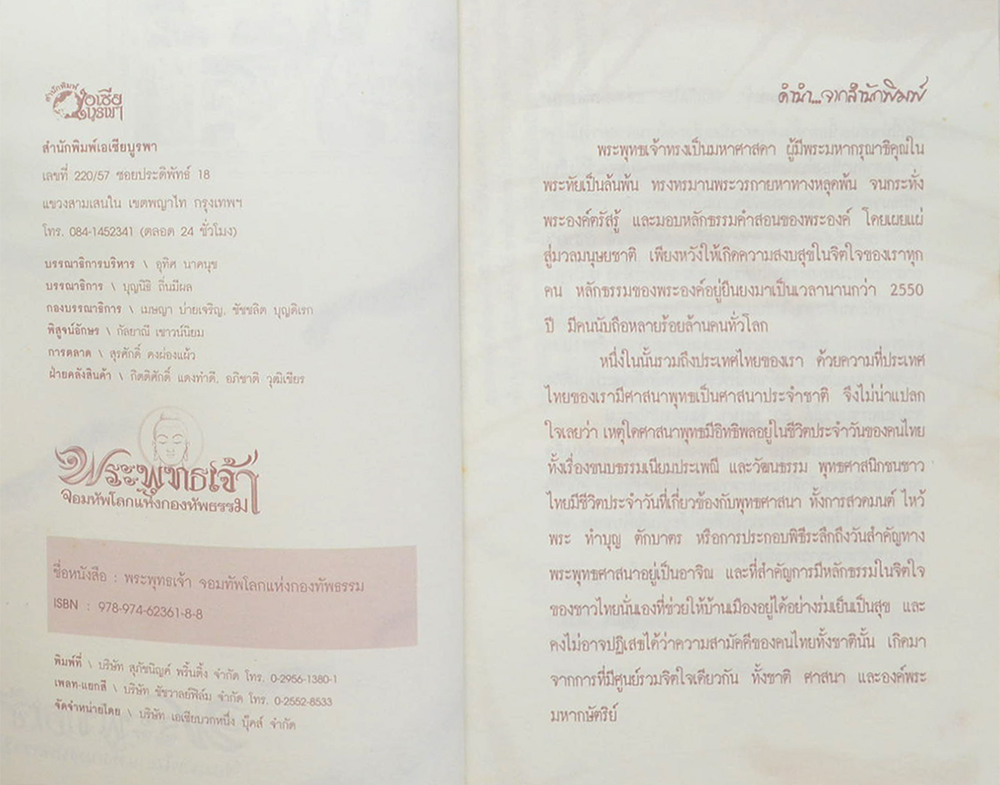 สำนักพิมพ์
เอเซีย
บูรพา
สำนักพิมพ์เอเซียบูรพา
เลขที่ 220/57 ซอยประดิพัทธ์ 18
แขวงสามเสนใน เขตพญาไท กรุงเทพฯ
โทร. 084-1452341 (ตลอด 24 ชั่วโมง)
บรรณาธิการบริหาร \ อุทิศ นาคนุช
บรรณาธิการ \ บุญนิธิ ถิ่นมีผล
กองบรรณาธิการ \ เมษญา บ่ายเจริญ, ชัชชลิต บุญดิเรก
พิสูจน์อักษร \ กัลยาณี เชาวน์นิยม
การตลาด \ สุรศักดิ์ ดงผ่องแผ้ว
ฝ่ายคลังสินค้า \ กิตติศักดิ์ แดงทำดี, อภิชาติ วุฒิเชียร
พระพุทธเจ้า
จอมทัพโลกแห่งกองทัพธรรม
ชื่อหนังสือ : พระพุทธเจ้า จอมทัพโลกแห่งกองทัพธรรม
ISBN : 978-974-62361-8-8
พิมพ์ที่ \ บริษัท สุภัชนิญค์ พริ้นติ้ง จำกัด โทร. 0-2956-1380-1
เพลท-แยกสี \ บริษัท ชัชวาลย์ฟิล์ม จำกัด โทร. 0-2552-8533
จัดจำหน่ายโดย \ บริษัท เอเซียบวกหนึ่ง บุ๊คส์ จำกัด
คำนำ...จากสำนักพิมพ์
พระพุทธเจ้าทรงเป็นมหาศาสดา ผู้มีพระมหากรุณาธิคุณใน
พระทัยเป็นล้นพ้น ทรงทรมานพระวรกายหาทางหลุดพ้น จนกระทั่ง
พระองค์ตรัสรู้ และมอบหลักธรรมคำสอนของพระองค์ โดยเผยแผ่
สู่มวลมนุษยชาติ เพียงหวังให้เกิดความสงบสุขในจิตใจของเราทุก
คน หลักธรรมของพระองค์อยู่ยืนยงมาเป็นเวลานานกว่า 2550
ปี มีคนนับถือหลายร้อยล้านคนทั่วโลก
หนึ่งในนั้นรวมถึงประเทศไทยของเรา ด้วยความที่ประเทศ
ไทยของเรามีศาสนาพุทธเป็นศาสนาประจำชาติ จึงไม่น่าแปลก
ใจเลยว่า เหตุใดศาสนาพุทธมีอิทธิพลอยู่ในชีวิตประจำวันของคนไทย
ทั้งเรื่องขนบธรรมเนียมประเพณี และวัฒนธรรม พุทธศาสนิกชนชาว
ไทยมีชีวิตประจำวันที่เกี่ยวข้องกับพุทธศาสนา ทั้งการสวดมนต์ ไหว้
พระ ทำบุญ ตักบาตร หรือการประกอบพิธีระลึกถึงวันสำคัญทาง
พระพุทธศาสนาอยู่เป็นอาจิณ และที่สำคัญการมีหลักธรรมในจิตใจ
ของชาวไทยนั่นเองที่ช่วยให้บ้านเมืองอยู่ได้อย่างร่มเย็นเป็นสุข และ
คงไม่อาจปฏิเสขได้ว่าความสามัคคีของคนไทยทั้งชาตินั้น เกิดมา
จากการที่มีศูนย์รวมจิตใจเดียวกัน ทั้งชาติ ศาสนา และองค์พระ
มหากษัตริย์